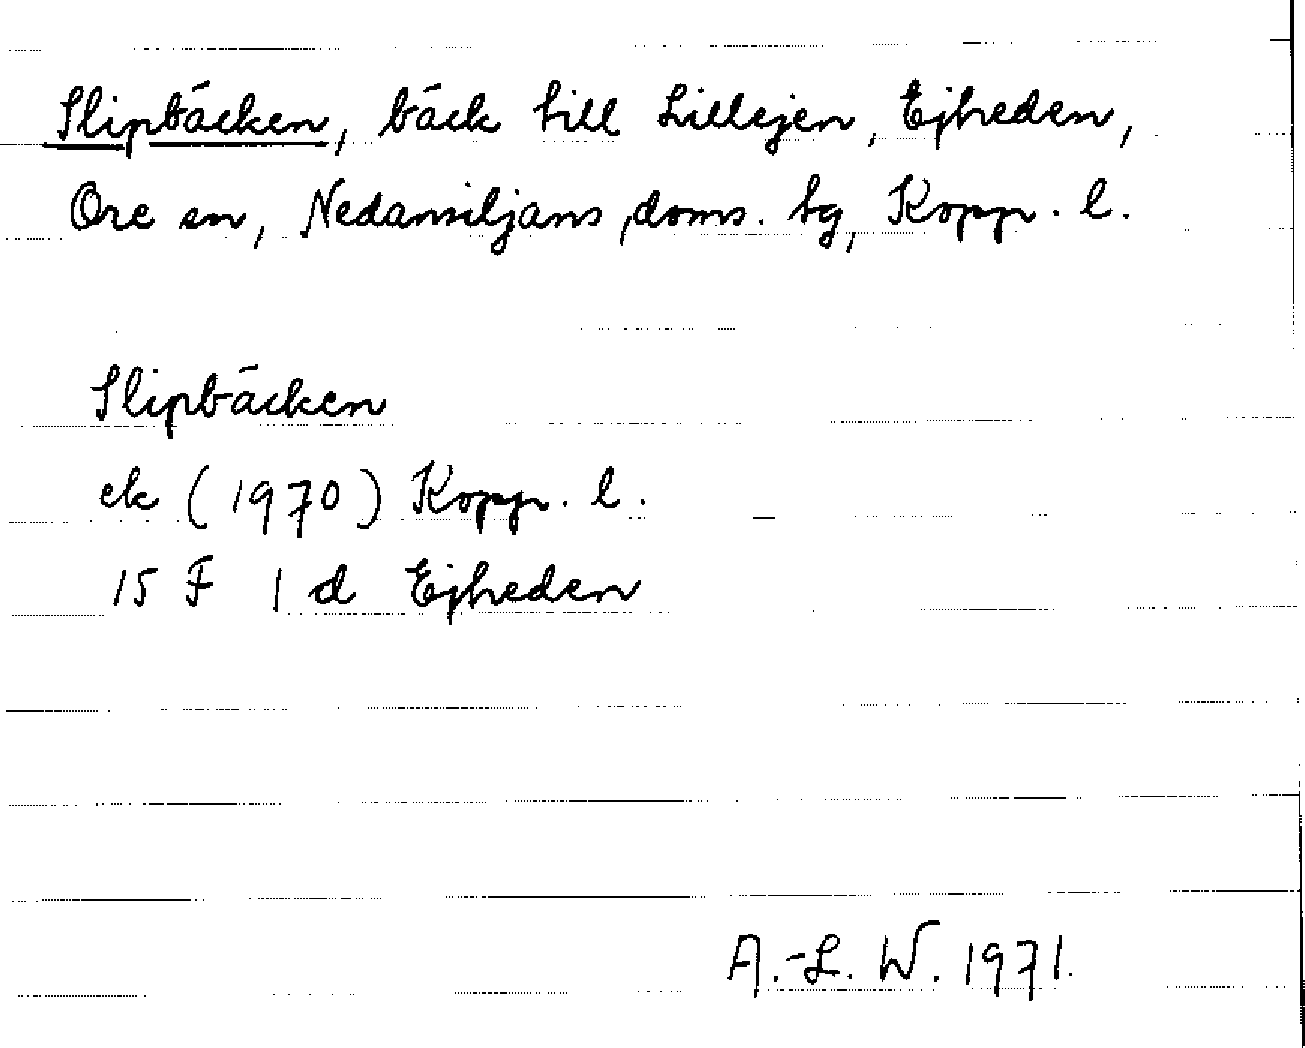 Slipbäcken, bäck till Lillejen, Ejheden,
Ore sn, Nedansiljans doms. tg, Kopp. l.
Slipbäcken
ek (1970) Kopp. l.
15 F 1 d Ejheden
A.-L. W. 1971.